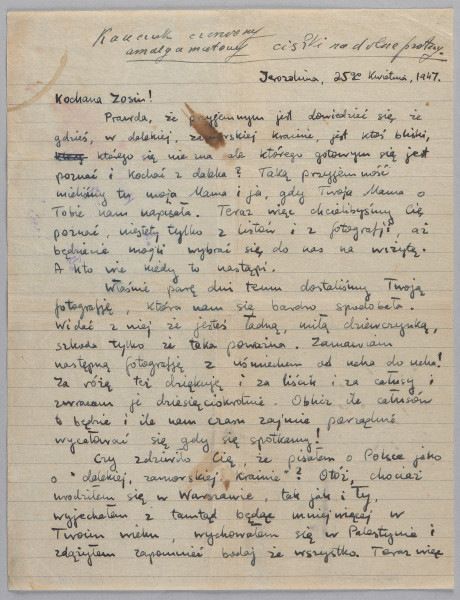 Kauczuk czerwony
amalgamatowy ciężki na dolne protezy.
Jerozolima, 25go kwietnia, 1947.
Kochana Zosiu!
Prawda, że przyjemnym jest dowiedzieć się że
gdzieś, w dalekiej, zamorskiej krainie, jest ktoś bliski,
którego się nie zna ale którego gotowym się jest
poznać i kochać z daleka? Taką przyjemność
mieliśmy tu moja Mama i ja, gdy Twoja Mama o
Tobie nam napisała. Teraz więc chcielibyśmy Cię
poznać, niestety tylko z listów i z fotografji, aż
będziecie mogli wybrać się do nas na wizytę.
A kto wie kiedy to nastąpi.
Właśnie parę dni temu dostaliśmy Twoją
fotografję, która nam się bardzo spodobała.
Widać z niej że jesteś ładną, miłą dziewczynką,
szkoda tylko że taka poważna. Zamawiam
następną fotografję z uśmiechem od ucha do ucha!
Za różę też dziękuję i za liścik i za całusy i
zwracam je dziesięciokrotnie. Oblicz ile całusów
to będzie i ile nam czasu zajmie porządne
wycałować się gdy się spotkamy!
Czy zdziwiło Cię, że pisałem o Polsce jako
o "dalekiej, zamorskiej krainie"? Otóż, chociaż
urodziłem się w Warszawie, tak jak i Ty,
wyjechałem z tamtąd będąc mniejwięcej w
Twoim wieku, wychowałem się w Palestynie i
zdążyłem zapomnieć bodaj że wszystko. Teraz więc